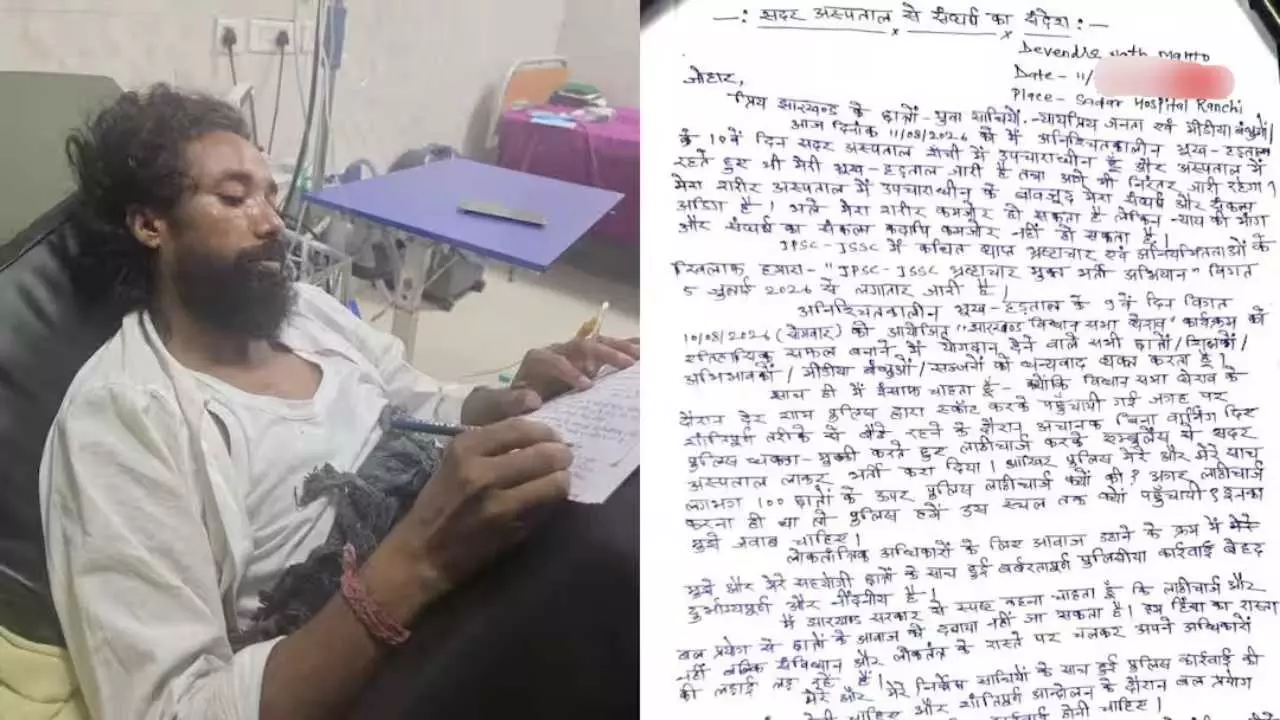 —: सदर अस्पताल से संघर्ष का संदेश :—
Devendra Nath Mahto
Date - 11/
Place - Sadar Hospital Ranchi
जोहार,
प्रिय झारखण्ड के छात्रों - युवा साथियों, न्यायप्रिय जनता एवं मीडीया बंधुओं।
आज दिनांक 11/08/2026 को मैं अनिश्चितकालीन भूख-हड़ताल
के 10वें दिन सदर अस्पताल राँची में उपचाराधीन हूँ और अस्पताल में
रहते हुए भी मेरी भूख-हड़ताल जारी है तथा आगे भी निरंतर जारी रहेगा।
मेरा शरीर अस्पताल में उपचाराधीन के बावजूद मेरा संघर्ष और संकल्प
अडिग है। भले मेरा शरीर कमजोर हो सकता है लेकिन न्याय की माँग
और संघर्ष का संकल्प कदापि कमजोर नहीं हो सकता है।
JPSC-JSSC में कथित व्याप्त भ्रष्टाचार एवं अनियमितताओं के
खिलाफ हमारा - "JPSC-JSSC भ्रष्टाचार मुक्त भर्ती अभियान" विगत
5 जुलाई 2026 से लगातार जारी है।
अनिश्चितकालीन भूख-हड़ताल के 9वें दिन विगत
10/08/2026 (सोमवार) को आयोजित "झारखण्ड विधान सभा घेराव" कार्यक्रम को
ऐतिहासिक सफल बनाने में योगदान देने वाले सभी छात्रों / शिक्षकों /
अभिभावकों / मीडीया बंधुओं / सज्जनों को धन्यवाद व्यक्त करता हूँ।
साथ ही मैं इंसाफ चाहता हूँ - क्योंकि विधान सभा घेराव के
दौरान देर शाम पुलिस द्वारा स्कॉट करके पहुँचायी गई जगह पर
शांतिपूर्ण तरीके से बैठे रहने के दौरान अचानक बिना वार्निंग दिए
पुलिस धक्का-मुक्की करते हुए लाठीचार्ज करके एम्बुलेंस से सदर
अस्पताल लाकर भर्ती करा दिया। आखिर पुलिस मेरे और मेरे साथ
लगभग 100 छात्रों के ऊपर पुलिस लाठीचार्ज क्यों की? अगर लाठीचार्ज
करना ही था तो पुलिस हमें उस स्थल तक क्यों पहुँचायी? इनका
मुझे जवाब चाहिए।
लोकतांत्रिक अधिकारों के लिए आवाज उठाने के क्रम में
मुझे और मेरे सहयोगी छात्रों के साथ हुई बर्बरतापूर्ण पुलिसीया कार्रवाई बेहद
दुर्भाग्यपूर्ण और निंदनीय है।
मैं झारखण्ड सरकार से स्पष्ट कहना चाहता हूँ कि लाठीचार्ज और
बल प्रयोग से छात्रों के आवाज को दबाया नहीं जा सकता है। हम हिंसा का रास्ता
नहीं बल्कि संविधान और लोकतंत्र के रास्ते पर चलकर अपने अधिकारों
की लड़ाई लड़ रहे हैं।
मेरे और मेरे निर्दोष साथियों के साथ हुई पुलिस कार्रवाई की
चाहिए और शांतिपूर्ण आन्दोलन के दौरान बल प्रयोग
कार्रवाई होनी चाहिए।